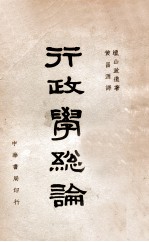 蠟山政道著
黄昌源譯
行政學總論
中華書局印行